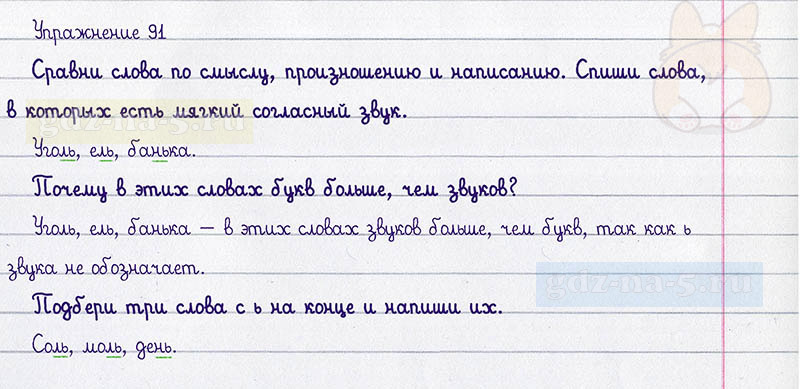 Упражнение 91
Сравни слова по смыслу, произношению и написанию. Спиши слова,
в которых есть мягкий согласный звук.
gdz-na-5.ru
Уголь, ель, банька.
Почему в этих словах букв больше, чем звуков?
Уголь, ель, банька — в этих словах звуков больше, чем букв, так как ь
звука не обозначает.
gdz-na-5.ru
Подбери три слова с ь на конце и напиши их.
Соль, моль, день.